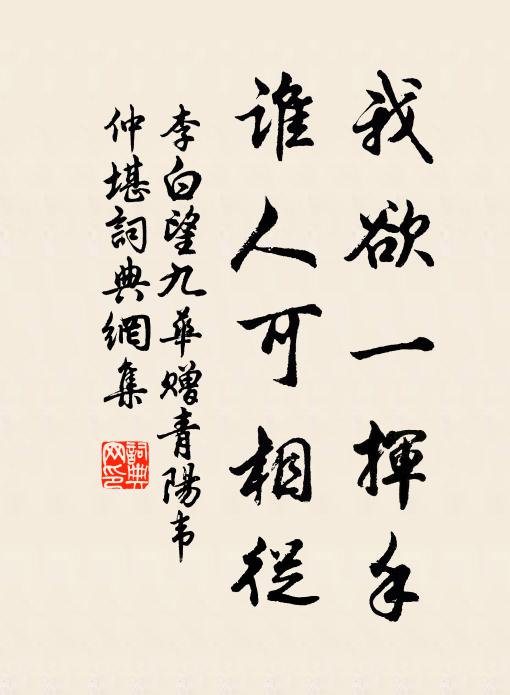 我欲一揮手
谁人可相從
李白望九華贈青陽韦
仲堪詞典網集
詞典
网印